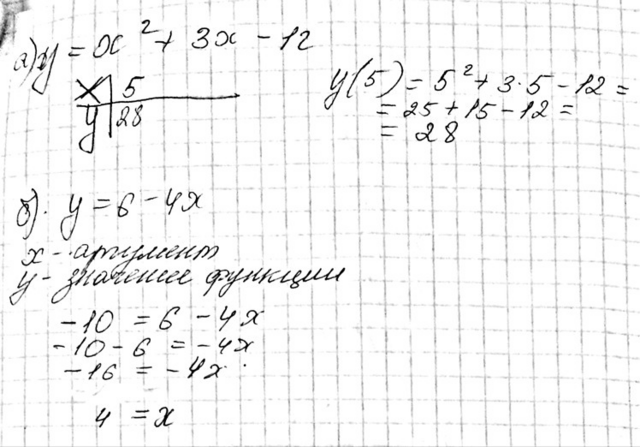 а) y = x² + 3x - 12
x | 5
y | 28
y(5) = 5² + 3·5 - 12 =
= 25 + 15 - 12 =
= 28
б). y = 6 - 4x
x - аргумент
y - значение функции
-10 = 6 - 4x
-10 - 6 = -4x
-16 = -4x
4 = x